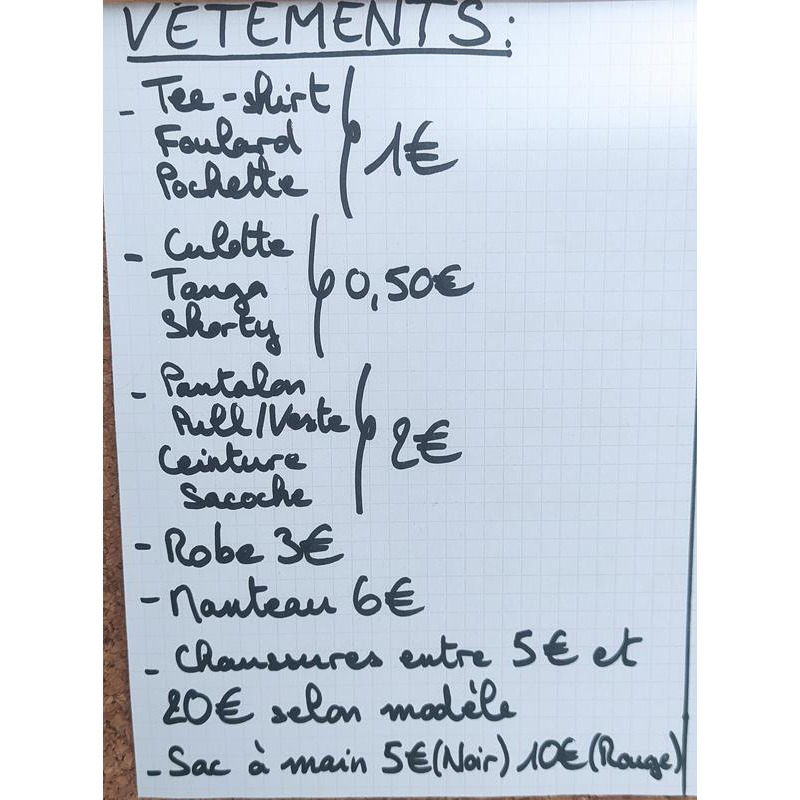 VÊTEMENTS:
- Tee-shirt
Foulard 1€
Pochette
- Culotte
Tanga 0,50€
Shorty
- Pantalon
Pull/Veste
Ceinture 2€
Sacoche
- Robe 3€
- Manteau 6€
- Chaussures entre 5€ et
20€ selon modèle
- Sac à main 5€(Noir) 10€(Rouge)